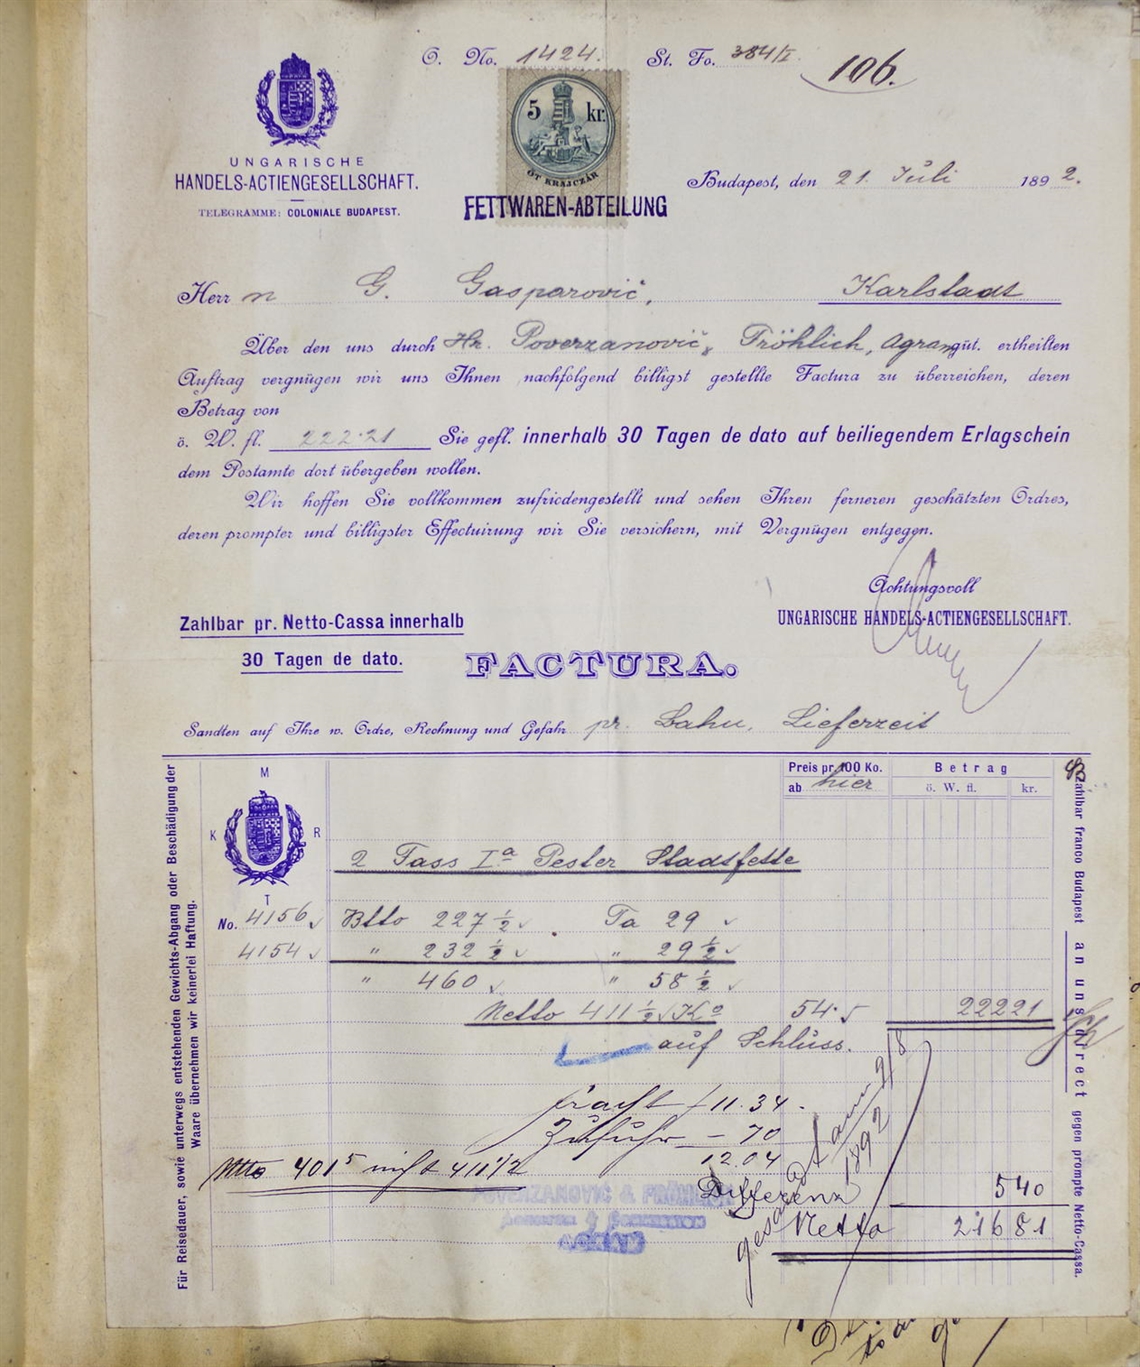 O. No. 1424. St. Fo. 384/I. 106.
5 kr.
ÖT KRAJCZÁR
UNGARISCHE
HANDELS-ACTIENGESELLSCHAFT.
TELEGRAMME: COLONIALE BUDAPEST.
FETTWAREN-ABTEILUNG
Budapest, den 21. Juli 1892.
Herrn G. Gasparović, Karlstadt
Über den uns durch Hr. Poverzanović & Fröhlich, Agram güt. ertheilten
Auftrag vergnügen wir uns Ihnen nachfolgend billigst gestellte Factura zu überreichen, deren
Betrag von
ö. W. fl. 222.21 Sie gefl. innerhalb 30 Tagen de dato auf beiliegendem Erlagschein
dem Postamte dort übergeben wollen.
Wir hoffen Sie vollkommen zufriedengestellt und sehen Ihren ferneren geschätzten Ordres,
deren prompter und billigster Effectuirung wir Sie versichern, mit Vergnügen entgegen.
Achtungsvoll
UNGARISCHE HANDELS-ACTIENGESELLSCHAFT.
Zahlbar pr. Netto-Cassa innerhalb
30 Tagen de dato.
FACTURA.
Sandten auf Ihre w. Ordre, Rechnung und Gefahr pr. Bahn, Lieferzeit
Preis pr. 100 Ko. Betrag
ab hier ö. W. fl. kr.
M
K R
T
2 Fass Iª Pester Stadtfette
No. 4156 Btto 227 1/2 Ta 29
4154 " 232 1/2 " 29 1/2
" 460 " 58 1/2
Netto 411 1/2 Ko 54. 22221
auf Schluss.
Fracht f 11.34.
Zufuhr – 70
12.04
Ntto 401⁵ nicht 411 1/2
Differenz 540
Netto 21681
2/8
1892
POVERZANOVIĆ & FRÖHLICH
AGENTUR & COMMISSION
AGRAM
Für Reisedauer, sowie unterwegs entstehenden Gewichts-Abgang oder Beschädigung der
Waare übernehmen wir keinerlei Haftung.
Zahlbar franco Budapest an uns direct gegen prompte Netto-Cassa.